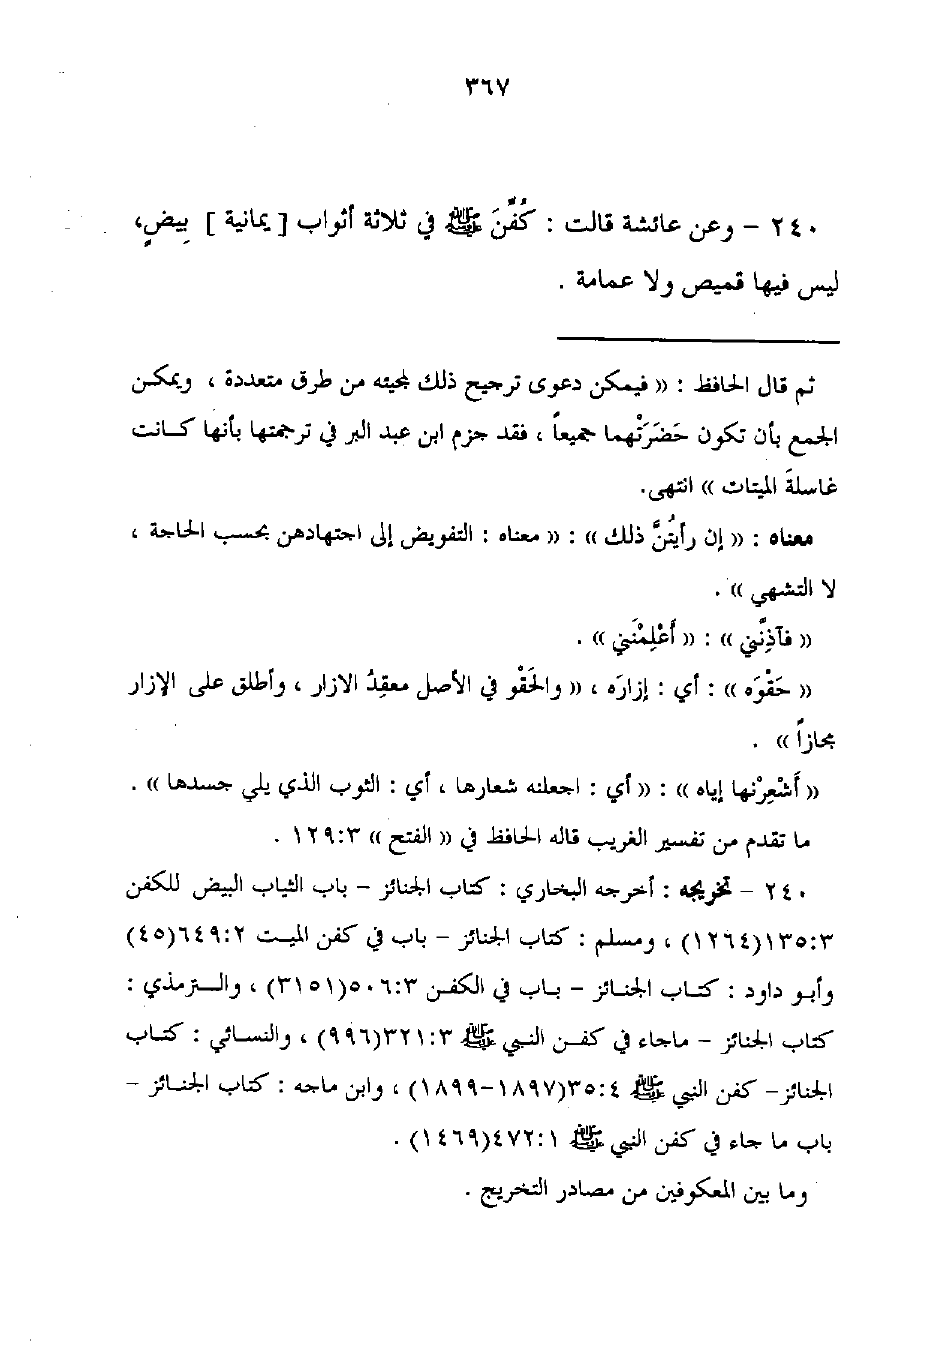 ٣٦٧
٢٤٠ - وعن عائشة قالت : كُفِّنَ ﷺ في ثلاثة أثواب [ يمانية ] بِيضٍ،
ليس فيها قميص ولا عمامة .
ثم قال الحافظ : (( فيمكن دعوى ترجيح ذلك لمجيئه من طرق متعددة ، ويمكن
الجمع بأن تكون حَضَرَتْهما جميعاً ، فقد جزم ابن عبد البر في ترجمتها بأنها كانت
غاسلةَ الميتات )) انتهى.
معناه : (( إن رأيتُنَّ ذلك )) : (( معناه : التفويض إلى اجتهادهن بحسب الحاجة ،
لا التشهي )) .
(( فآذِنَّني )) : (( أَعْلِمْنَني )) .
(( حَقْوَه )) : أي : إزارَه ، (( والحَقْو في الأصل معقِدُ الازار ، وأطلق على الإزار
مجازاً )) .
(( أَشْعِرْنها إياه )) : (( أي : اجعلنه شعارها ، أي : الثوب الذي يلي جسدها )) .
ما تقدم من تفسير الغريب قاله الحافظ في (( الفتح )) ١٢٩:٣ .
٢٤٠ - تخريجه : أخرجه البخاري : كتاب الجنائز - باب الثياب البيض للكفن
١٣٥:٣(١٢٦٤) ، ومسلم : كتاب الجنائز - باب في كفن الميت ٦٤٩:٢(٤٥)
وأبو داود : كتاب الجنائز - باب في الكفن ٥٠٦:٣(٣١٥١) ، والترمذي :
كتاب الجنائز - ماجاء في كفن النبي ﷺ ٣٢١:٣(٩٩٦) ، والنسائي : كتاب
الجنائز- كفن النبي ﷺ ٣٥:٤(١٨٩٧-١٨٩٩) ، وابن ماجه : كتاب الجنائز -
باب ما جاء في كفن النبي ﷺ ٤٧٢:١(١٤٦٩) .
وما بين المعكوفين من مصادر التخريج .